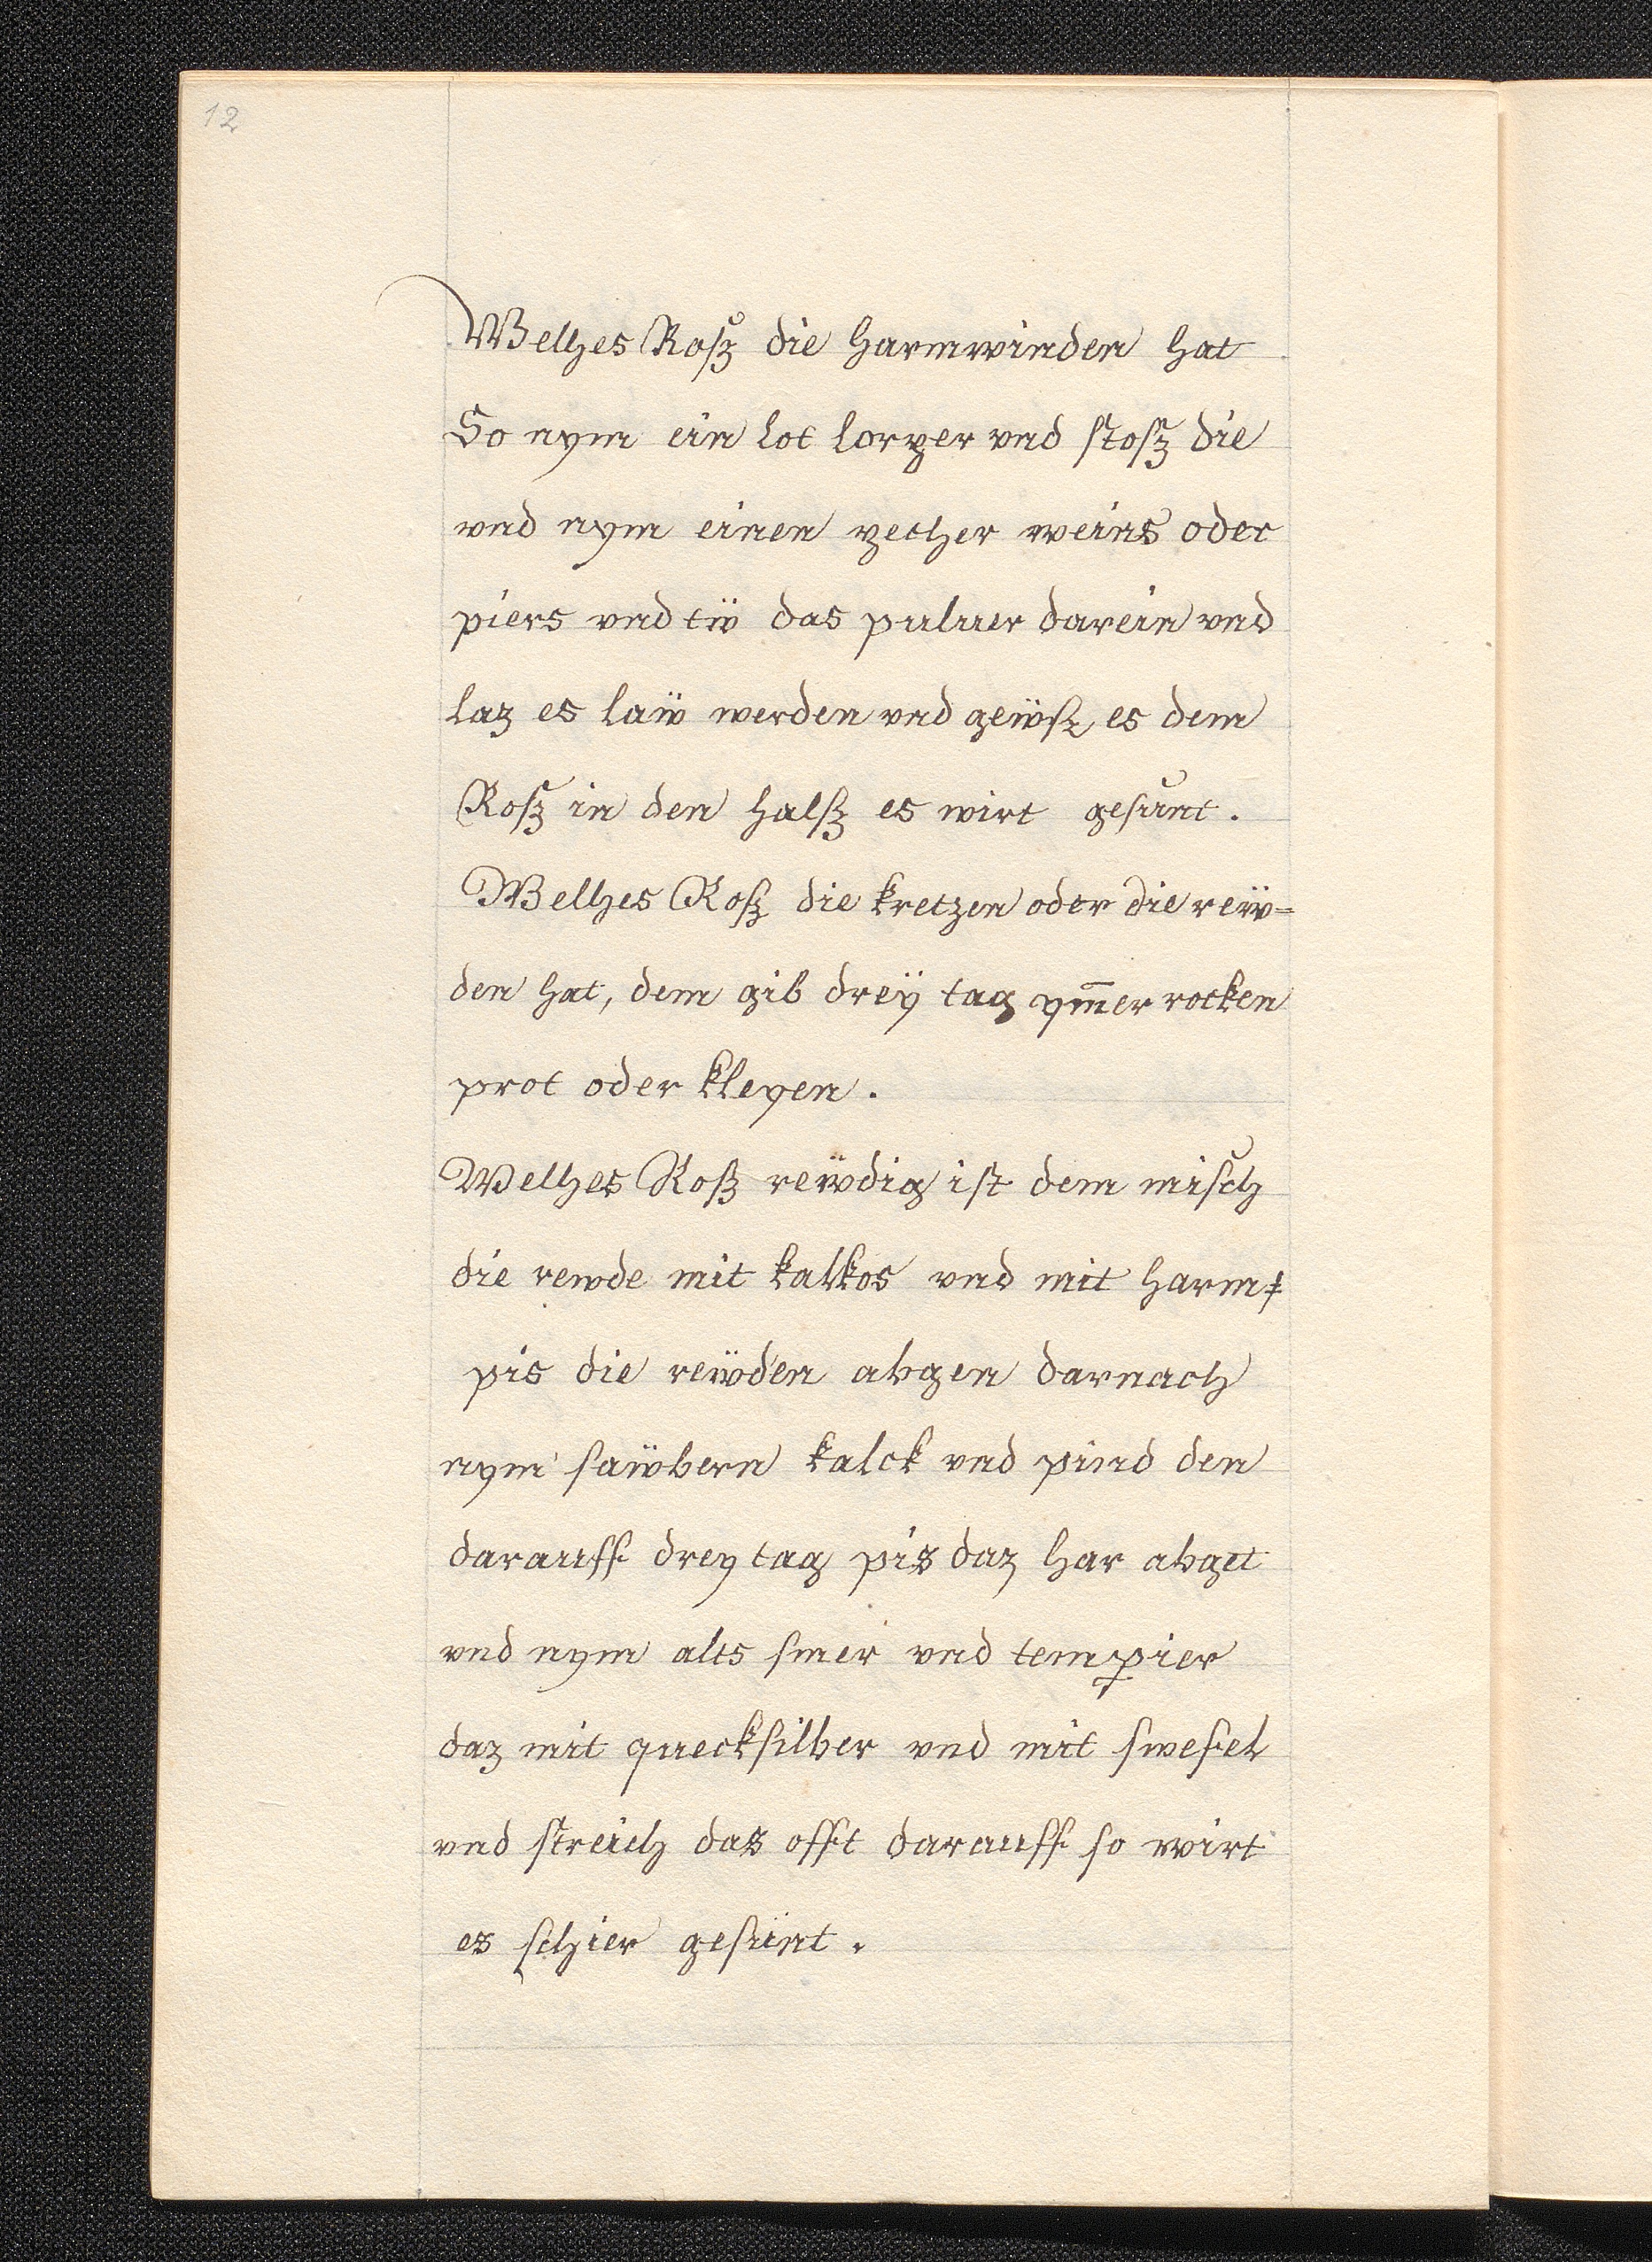 12
Welhes Rosz die harmwinden hat
So nym ein lot lorper vnd stosz die
vnd nym einen pecher weins oder
piers vnd tẅ das puluer darein vnd
laz es laẅ werden vnd geẅsz es dem
Rosz in den halsz es wirt gesunt.
Welhes Rosz die kretzen oder die reẅ=
den hat, dem gib dreÿ tag ym̄er rocken
prot oder kleyen.
Welhes Rosz reẅdig ist dem misch
die rewde mit kalkos vnd mit harm
pis die reẅden abgen darnach
nym saẅbern kalck vnd pind den
darauff drey tag pis daz har abget
vnd nym alts smer vnd tempier
daz mit quecksilber vnd mit swefel
vnd streich das offt darauff so wirt
es schier gesünt.